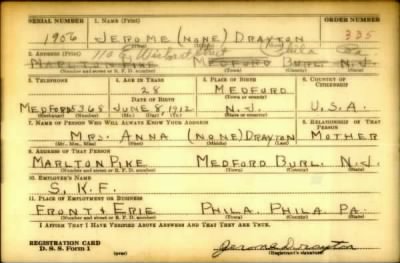 SERIAL NUMBER 1. NAME (Print) ORDER NUMBER
1906 JEROME (NONE) DRAYTON 335
(First) (Middle) (Last)
2. ADDRESS (Print) 110 Phila Pa
MARLTON PIKE MEDFORD BURL. N.J.
(Number and street or R. F. D. number) (Town) (County) (State)
3. TELEPHONE 4. AGE IN YEARS 5. PLACE OF BIRTH 6. COUNTRY OF CITIZENSHIP
28 MEDFORD
DATE OF BIRTH (Town or county)
MEDFORD 5368 JUNE 8, 1912 N.J. U.S.A.
(Exchange) (Number) (Mo.) (Day) (Yr.) (State or country)
7. NAME OF PERSON WHO WILL ALWAYS KNOW YOUR ADDRESS 8. RELATIONSHIP OF THAT PERSON
MRS. ANNA (NONE) DRAYTON MOTHER
(Mr., Mrs., Miss) (First) (Middle) (Last)
9. ADDRESS OF THAT PERSON
MARLTON PIKE MEDFORD BURL. N.J.
(Number and street or R. F. D. number) (Town) (County) (State)
10. EMPLOYER'S NAME
S. K. F.
11. PLACE OF EMPLOYMENT OR BUSINESS
FRONT & ERIE PHILA. PHILA. PA.
(Number and street or R. F. D. number) (Town) (County) (State)
I AFFIRM THAT I HAVE VERIFIED ABOVE ANSWERS AND THAT THEY ARE TRUE.
REGISTRATION CARD
D. S. S. Form 1 (over) Jerome Drayton
(Registrant's signature)